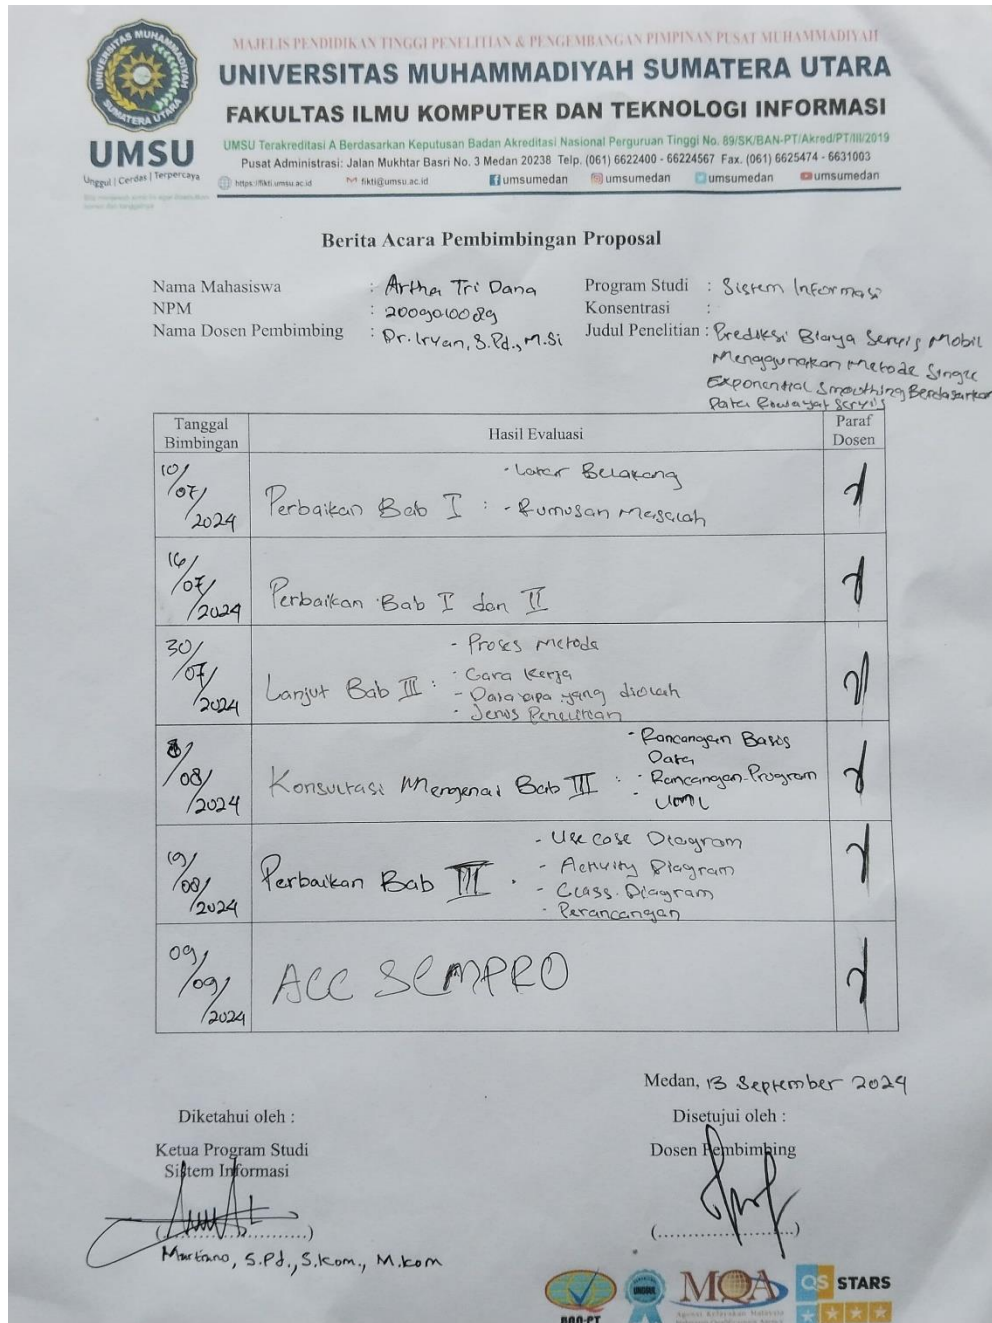 MAJELIS PENDIDIKAN TINGGI PENELITIAN & PENGEMBANGAN PIMPINAN PUSAT MUHAMMADIYAH
UNIVERSITAS MUHAMMADIYAH SUMATERA UTARA
FAKULTAS ILMU KOMPUTER DAN TEKNOLOGI INFORMASI
UMSU Terakreditasi A Berdasarkan Keputusan Badan Akreditasi Nasional Perguruan Tinggi No. 89/SK/BAN-PT/Akred/PT/III/2019
Pusat Administrasi: Jalan Mukhtar Basri No. 3 Medan 20238 Telp. (061) 6622400 - 66224567 Fax. (061) 6625474 - 6631003
https://fikti.umsu.ac.id fikti@umsu.ac.id umsumedan umsumedan umsumedan umsumedan
UNIVERSITAS MUHAMMADIYAH SUMATERA UTARA
UMSU
Unggul | Cerdas | Terpercaya
Berita Acara Pembimbingan Proposal
Nama Mahasiswa : Artha Tri Dana
NPM : 2009010089
Nama Dosen Pembimbing : Dr. Iryan, S.Pd., M.Si
Program Studi : Sistem Informasi
Konsentrasi :
Judul Penelitian : Prediksi Biaya Servis Mobil
Menggunakan Metode Single
Exponential Smoothing Berdasarkan
Data Riwayat Servis
Tanggal Bimbingan Hasil Evaluasi Paraf Dosen
10/07/2024 Perbaikan Bab I : - Latar Belakang
- Rumusan Masalah
16/07/2024 Perbaikan Bab I dan II
30/07/2024 Lanjut Bab III : - Proses Metode
- Cara Kerja
- Data apa yang diolah
- Jenis Penelitian
/08/2024 Konsultasi Mengenai Bab III : - Rancangan Basis Data
- Rancangan Program
- UML
19/08/2024 Perbaikan Bab III . - Use Case Diagram
- Activity Diagram
- Class Diagram
- Perancangan
09/09/2024 ACC SEMPRO
Medan, 13 September 2024
Diketahui oleh :
Ketua Program Studi
Sistem Informasi
(....................)
Martiano, S.Pd., S.Kom., M.Kom
Disetujui oleh :
Dosen Pembimbing
(....................)
BAN-PT
UNGGUL
MQA
QS STARS